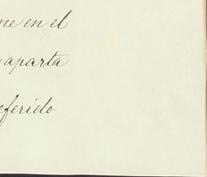 me en el
aparta
eferido